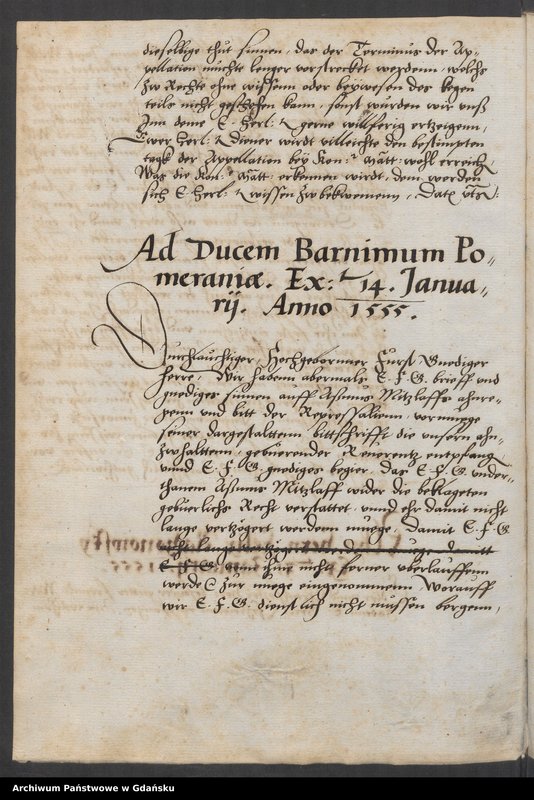 dieselbige thut sinnen, das der Terminus der Ap=
pellation muchte lenger vorstrecket werdenn, welchs
zw Rechte ohne wissenn oder beywesen des kegen
teils nicht gescheen kann, sonst wurden wir vnß
Inn deme E. Herl: gerne willferig ertzeigenn,
Ewer Herl: diener wirdt villeichte den bestimpten
tagk der Appellation bey Kon: Matt: wohl erreich
Was die Kon: Matt: erkennen wirdt, dem werden
sich E Herl: wissen zw bekwemenn, Dat
Ad Ducem Barnimum Po=
meraniæ. Ex: 14. Janua=
rij. Anno 1555.
Durchlauchtiger, Hochgebornner Furst Gnediger
herre, Wir habenn abermals E. F. G. brieff vnd
gnediges sinnen auff Asmus Mitzlaffs ahnre=
genn vnd bitt der Repressalienn, vormuege
seiner dargestalttenn bittschrifft die vnsern ahn=
zwhalttenn, gebuerender Reuerentz entpfang
vnnd E. F. G. gnediges begier, das E. F. G. vnder=
thanem Asmus Mitzlaff wider die beklageten
gebuerlichs Recht verstattet, vnnd ehr damit nicht
lange vertzögert werdenn muege, Damit E. F. G.
E. F. G. vonn Ihme nicht ferner vberlauffenn
werde zur muege eingenommenn, Worauff
wir E. F. G. dienstlich nicht mussen bergenn,
Archiwum Państwowe w Gdańsku